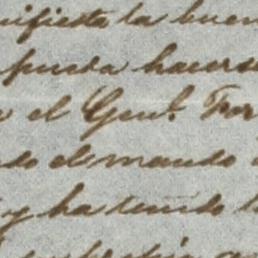 nifiesta la buen
pueda hacerse
el Genl. Tor
do el mando
y ha tenido l